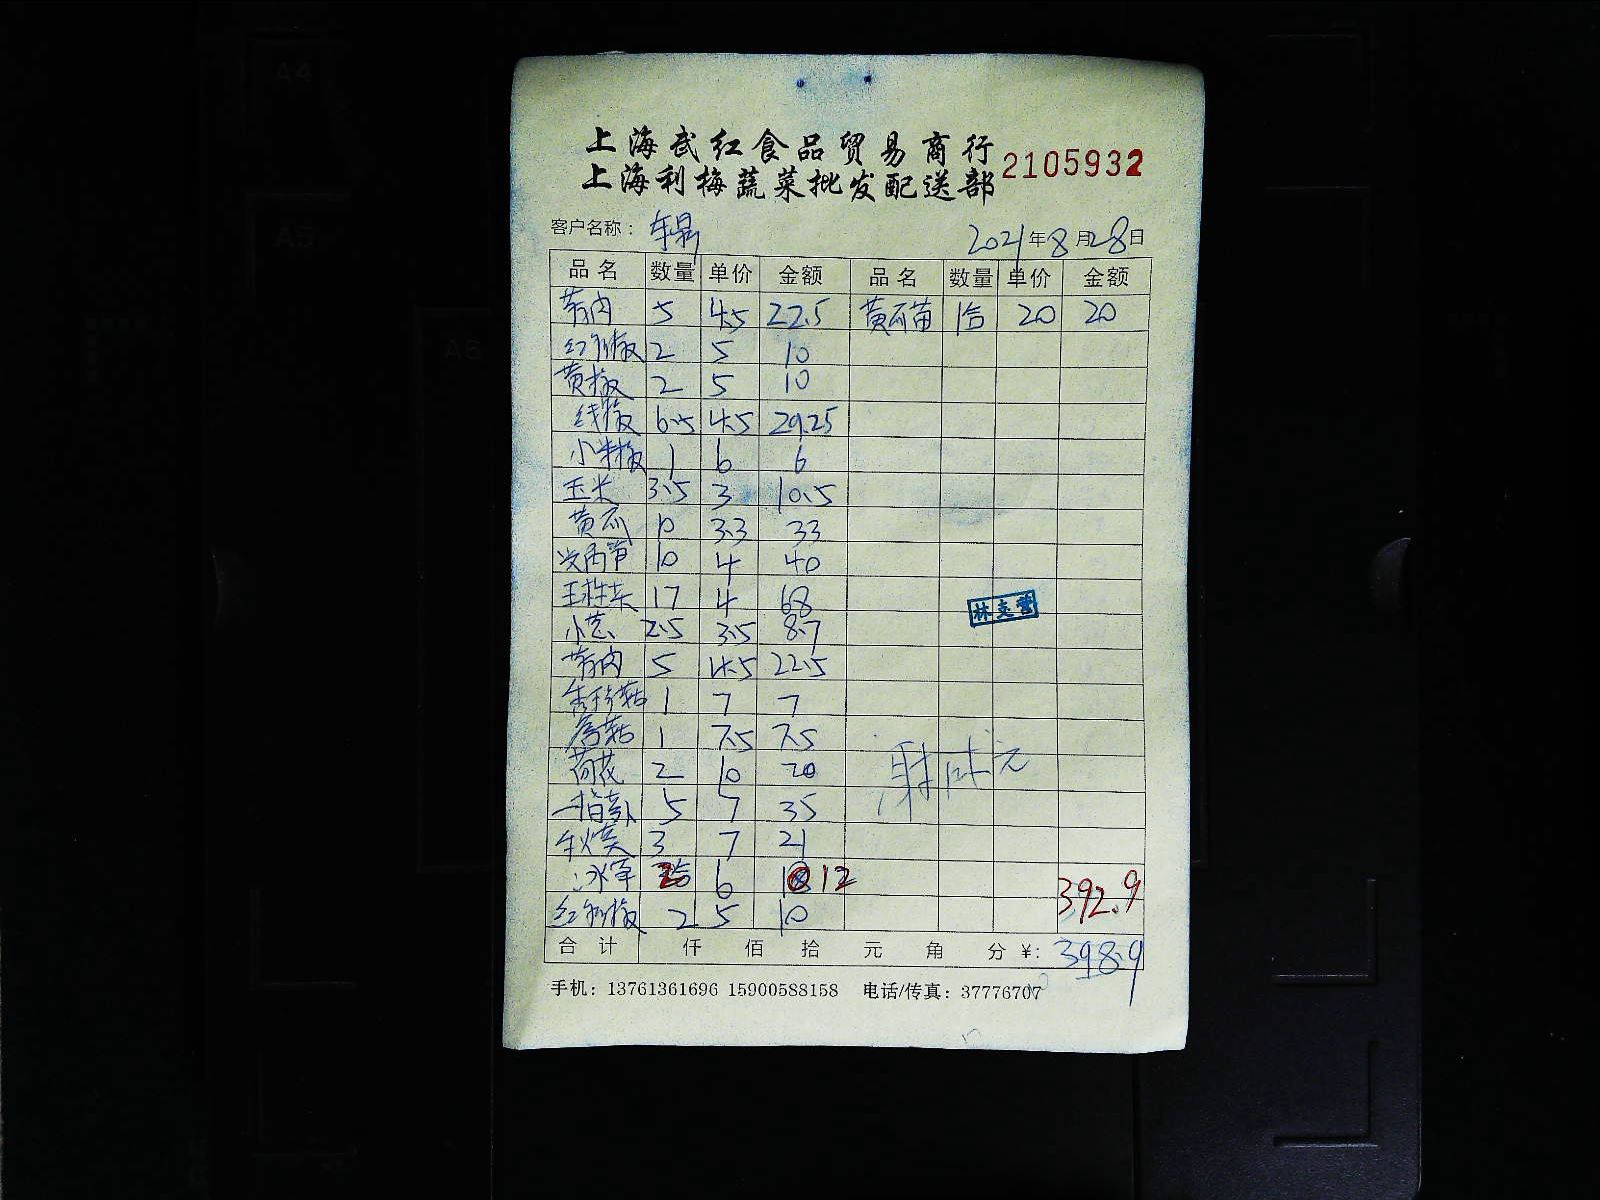 上海武红食品贸易商行
上海利梅蔬菜批发配送部
2105932
客户名称：
2021年8月28日
品名 数量 单价 金额 品名 数量 单价 金额
5 4.5 22.5 黄瓜苗 1合 20 20
2 5 10
黄椒 2 5 10
线椒 6.5 4.5 29.25
小米椒 1 6 6
玉米 3.5 3 10.5
黄瓜 10 3.3 33
10 4 40
17 4 68
小葱 2.5 3.5 8.7
5 4.5 22.5
1 7 7
1 7.5 7.5
荷花 2 10 20
5 7 35
3 7 21
冰草 2 6 12
2 5 10
392.9
林克营
合计 仟 佰 拾 元 角 分 ¥: 398.9
手机：13761361696 15900588158 电话/传真：37776707
A4
A5
A6